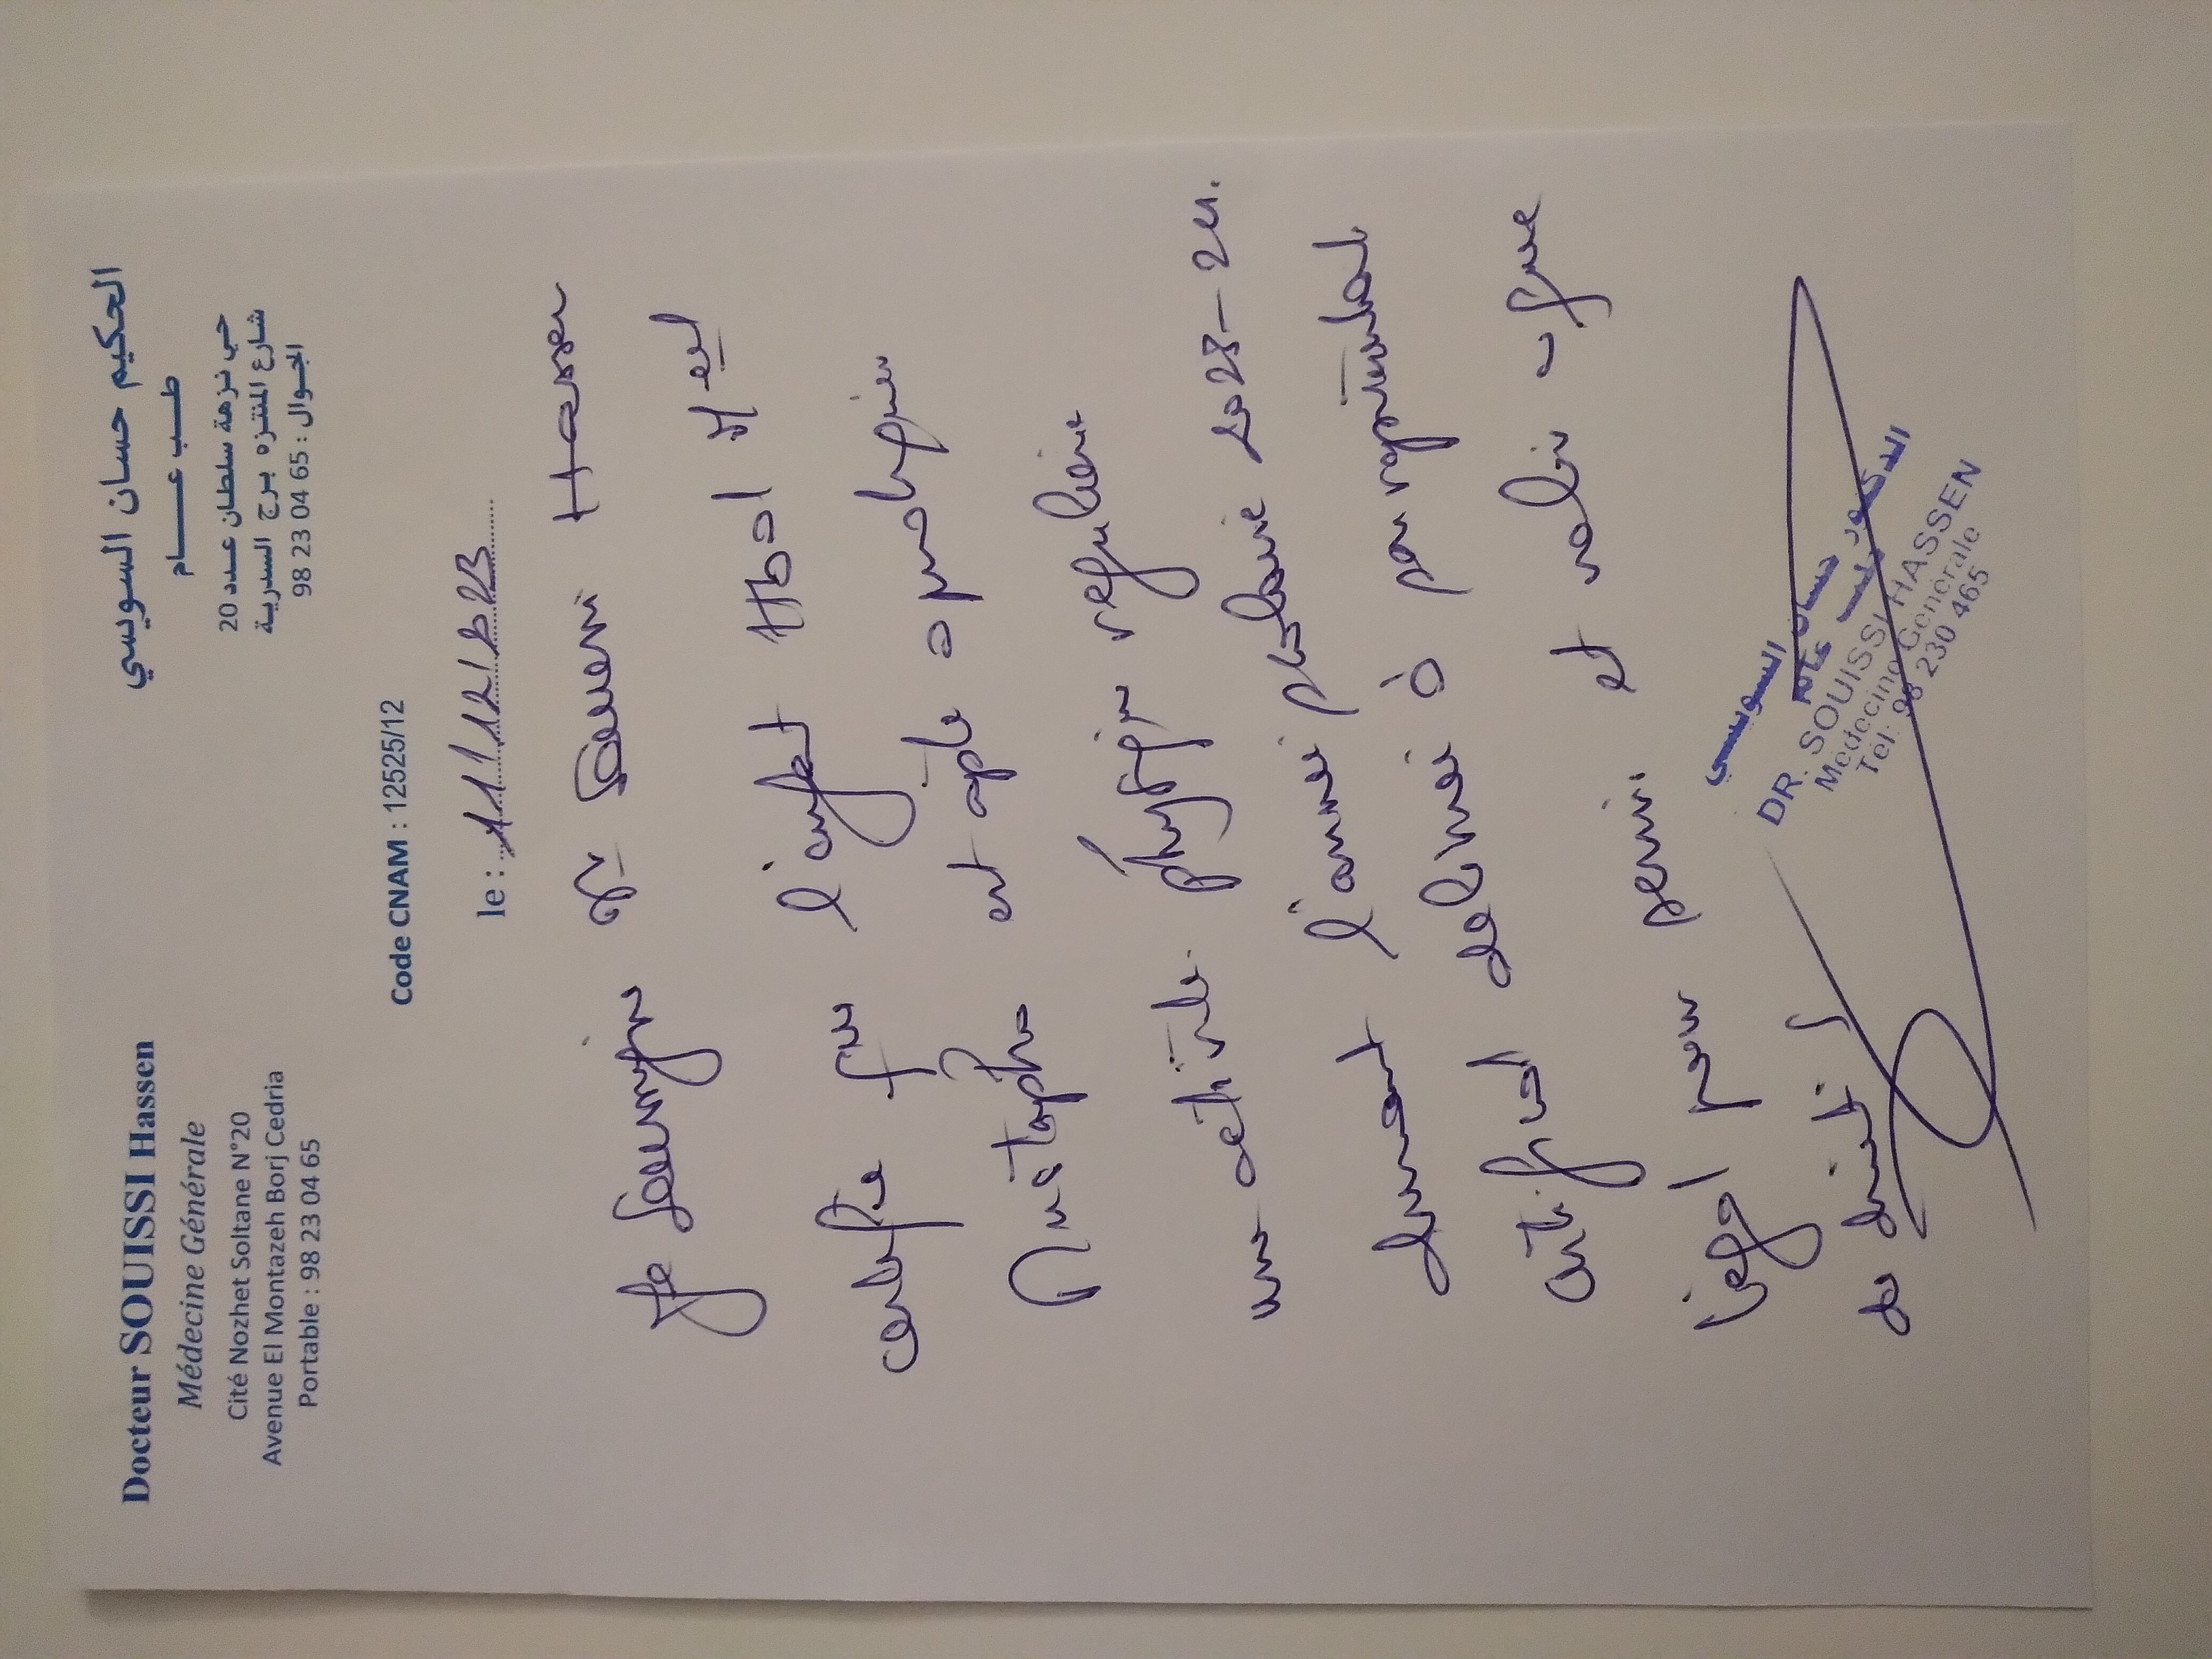 Docteur SOUISSI Hassen
Médecine Générale
Cité Nozhet Soltane N°20
Avenue El Montazeh Borj Cedria
Portable : 98 23 04 65
الحكيم حسان السويسي
طب عام
حي نزهة سلطان عدد 20
شارع المنتزه برج السدرية
الجوال : 98 23 04 65
Code CNAM : 12525/12
le : 11/12/2023
Je soussigné Dr Souissi Hassen
certifie que l'enfant
Mustapha est apte a pratiquer
une activité physique régulière
durant l'année scolaire 2023-24.
Certificat délivré à son représentant
légal pour servir et valoir ce que
de droit
الدكتور حسان السويسي
DR. SOUISSI HASSEN
Médecine Générale
Tél: 98 230 465